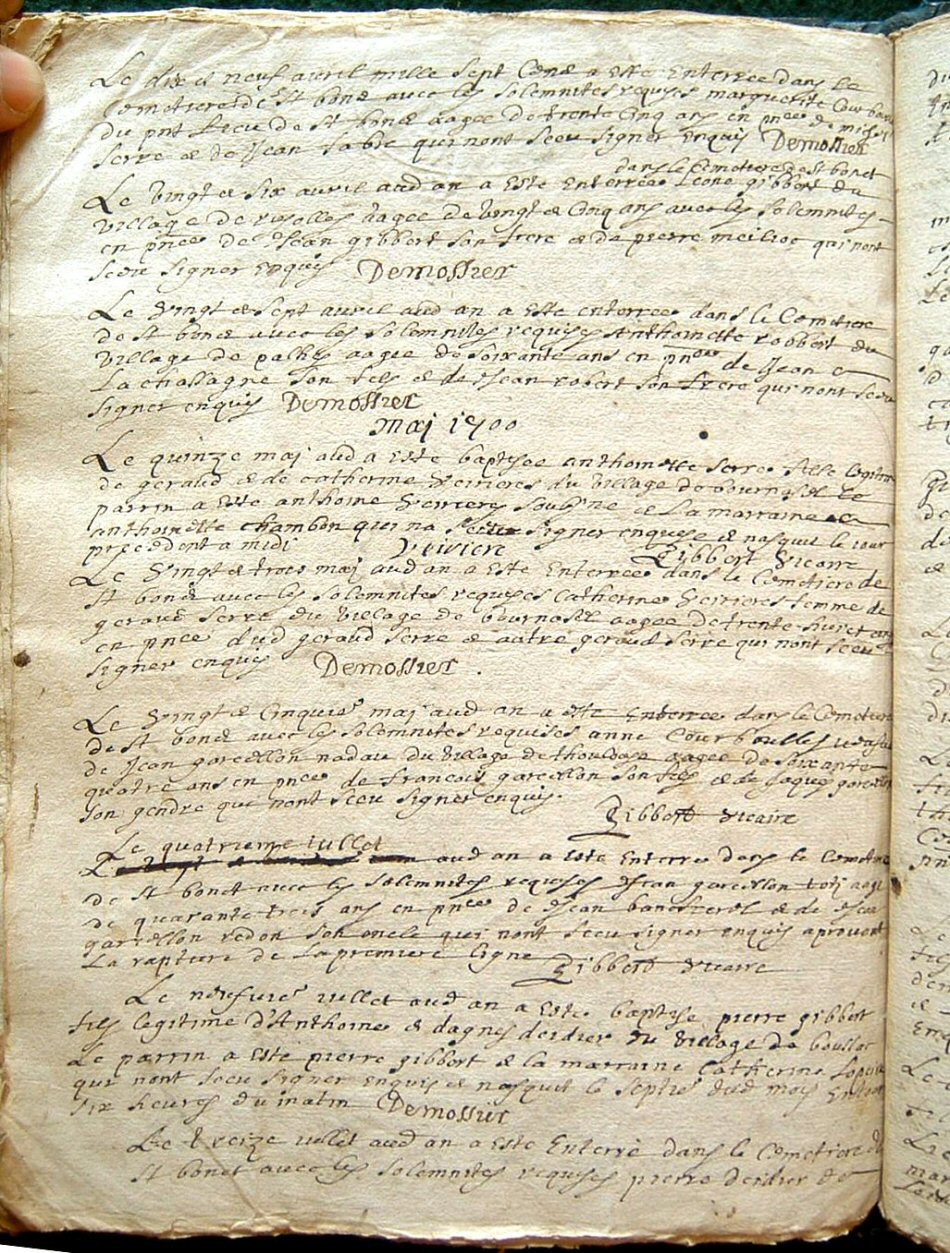 Le dix et neuf avril mille sept Cens a este Enterree dans le
Cometiere de st bonet avec les solemnites requyses marguerite Courb
du pnt Lieu de st bonet aagee de trente Cinq ans en pnce de
serre et de Jean qui nont sceu signer enquis Demossier
dans le Cemetiere de st bonet
Le vingt et six avril aud an a este enterree Leone gibbert du
village de aagee de vingt et Cinq ans avec les solemnites
en pnce de Jean gibbert son frere et de pierre qui nont
sceu signer enquis Demossier
Le vingt et sept avril aud an a este enterree dans le Cometiere
de st bonet avec les solemnites requises Anthoinette robbert du
village de aagee de soixante ans en pnce de Jean
La chassagne son fils et de Jean robert son frere qui nont sceu
signer enquis Demossier
maj 1700
Le quinze maj aud a este baptisee anthoinette serre fille legitime
de geraud et de catherine veirieres du village de bournasel le
parrin a este anthoine veiriere soubsne et La marraine
anthoinette chambon qui na sceu signer enquise et nasquit le iour
precedent a midi Veiriere Gibbert vicaire
Le vingt et trois maj aud an a este Enterree dans le Cometiere de
st bonet avec les solemnites requyses Catherine veirieres femme de
geraud serre du village de bournasel aagee de trente huict ans
en pnce dud geraud serre et autre geraud serre qui nont sceu
signer enquis Demossier.
Le vingt et Cinquies maj aud an a este Enterree dans le Cometiere
de st bonet avec les solemnites requises anne Courboulles
de Jean garcellon nadau du village de aagee de soixante
quatre ans en pnce de francois garcellon son fils et de Jaques
son gendre qui nont sceu signer enquis.
Gibbert vicaire
Le quatrieme iullet
aud an a este Enterre dans le Cometiere
de st bonet avec les solemnites requyses Jean garcellon aage
de quarante trois ans en pnce de Jean et de Jean
garcellon redon son oncle qui nont sceu signer enquis aprouvant
La rapture de la premiere ligne Gibbert vicaire
Le neufvies iullet aud an a este baptise pierre gibbert
fils legitime d'Anthoine et dagnes deidier du village de
Le parrin a este pierre gibbert et la marraine Catherine
qui nont sceu signer enquis et nasquit le septies dud mois Environ
six heures du matin Demossier
Le treize iullet aud an a este Enterre dans le Cometiere de
st bonet avec les solemnites requyses pierre deidier de